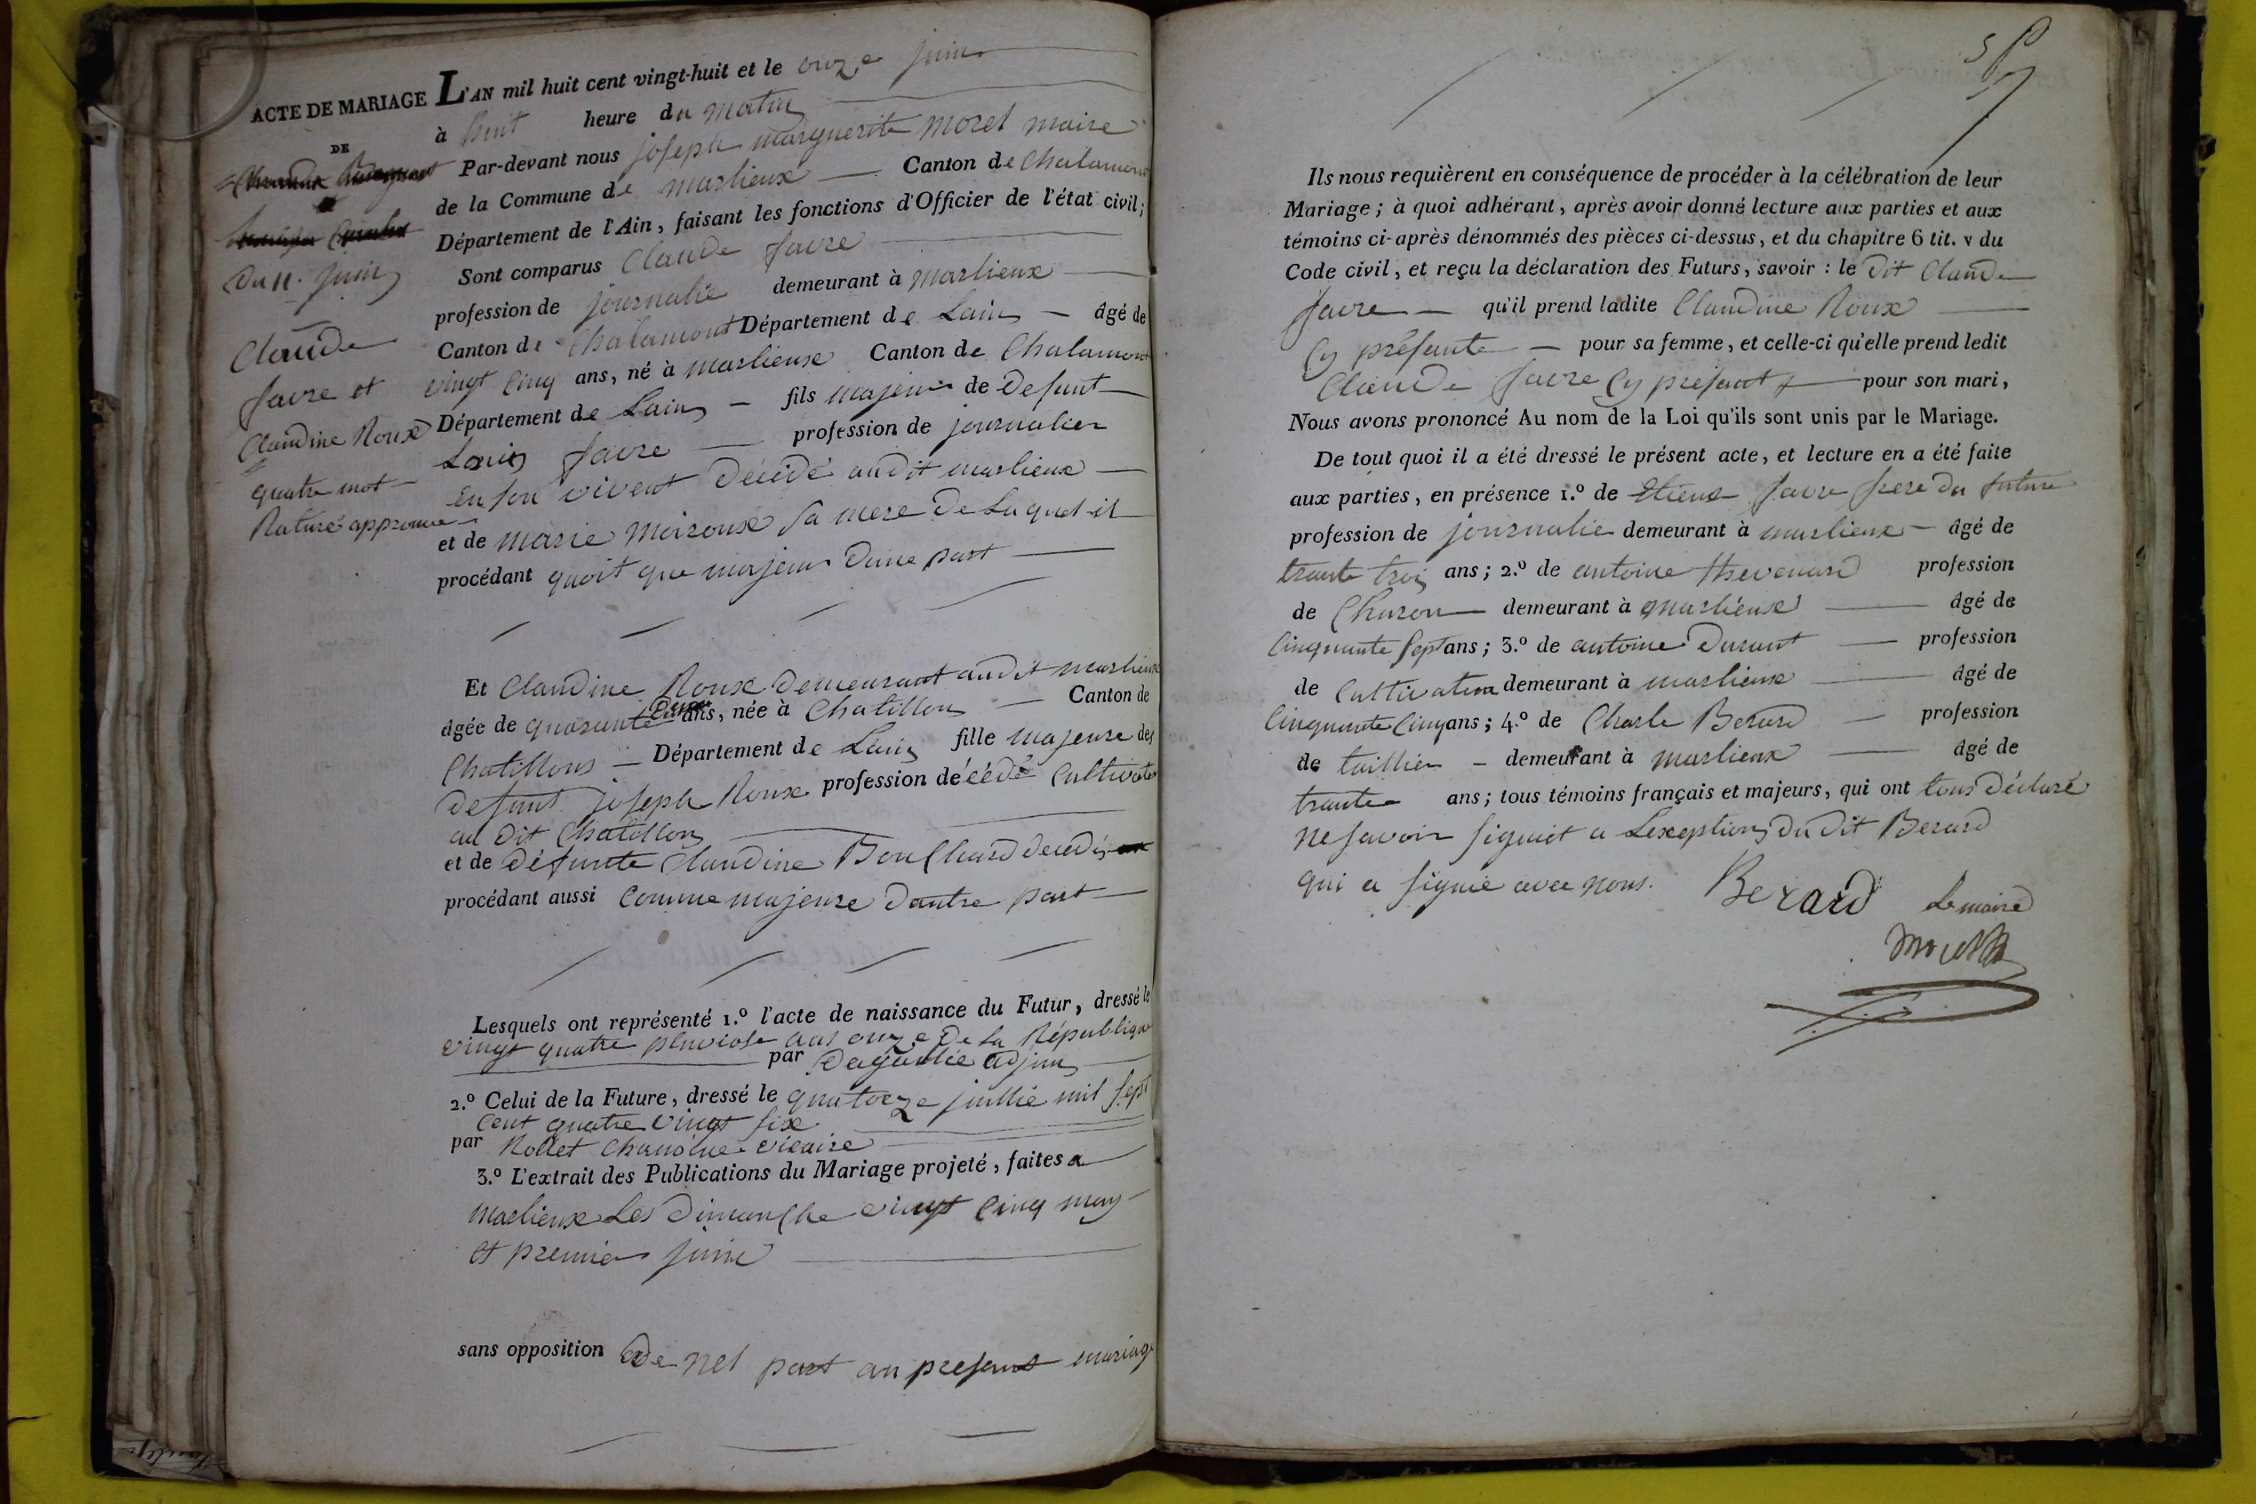 ACTE DE MARIAGE
DE
Du 11. juin
Claude
favre et
Claudine Roux
quatre mot
Raturé approuve
L'AN mil huit cent vingt-huit et le onze juin
à huit heure du matin
Par-devant nous joseph marguerite morel maire
de la Commune de marlieux Canton de Chalamont
Département de l'Ain, faisant les fonctions d'Officier de l'état civil;
Sont comparus Claude favre
profession de journalié demeurant à marlieux
Canton de Chalamont Département de Lain âgé de
vingt cinq ans, né à marlieux Canton de Chalamont
Département de Lain fils majeur de Defunt
Louis favre profession de journalier
en son vivent décédé audit marlieux
et de marie moiroux sa mere de Laquel il
procédant quoit que majeur dune part
Et Claudine Roux demeurant audit marlieux
âgée de quarante deux ans, née à Chatillon Canton de
Chatillons Département de Lain fille majeure des
defunt joseph Roux profession de cédé Cultivateur
au dit Chatillon
et de défunte Claudine Bouchard decedés
procédant aussi comme majeure dautre part
Lesquels ont représenté 1.º l'acte de naissance du Futur, dressé le
vingt quatre pluviose ans onze de la République
par adjoin
2.º Celui de la Future, dressé le quatorze juillie mil sept
cent quatre vingt six
par Rollet chanoine vicaire
3.º L'extrait des Publications du Mariage projeté, faites a
marlieux Les dimanche vingt cinq may
et premier juin
sans opposition de nel part au presant mariage
Ils nous requièrent en conséquence de procéder à la célébration de leur
Mariage; à quoi adhérant, après avoir donné lecture aux parties et aux
témoins ci-après dénommés des pièces ci-dessus, et du chapitre 6 tit. v du
Code civil, et reçu la déclaration des Futurs, savoir : le dit Claude
favre qu'il prend ladite Claudine Roux
Cy présante pour sa femme, et celle-ci qu'elle prend ledit
Claude favre Cy présant pour son mari,
Nous avons prononcé Au nom de la Loi qu'ils sont unis par le Mariage.
De tout quoi il a été dressé le présent acte, et lecture en a été faite
aux parties, en présence 1.º de Etiene favre frere du future
profession de journalié demeurant à marlieux âgé de
trante troi ans; 2.º de antoine thevenard profession
de Charon demeurant à marlieux âgé de
Cinquante sept ans; 3.º de antoine Durant profession
de Cultivateur demeurant à marlieux âgé de
Cinquante Cinq ans; 4.º de Charle Berard profession
de taillier demeurant à marlieux âgé de
trante ans; tous témoins français et majeurs, qui ont tous déclaré
ne savoir signiet a Lexeption du dit Berard
qui a signié avec nous. Berard Le maire
Morel